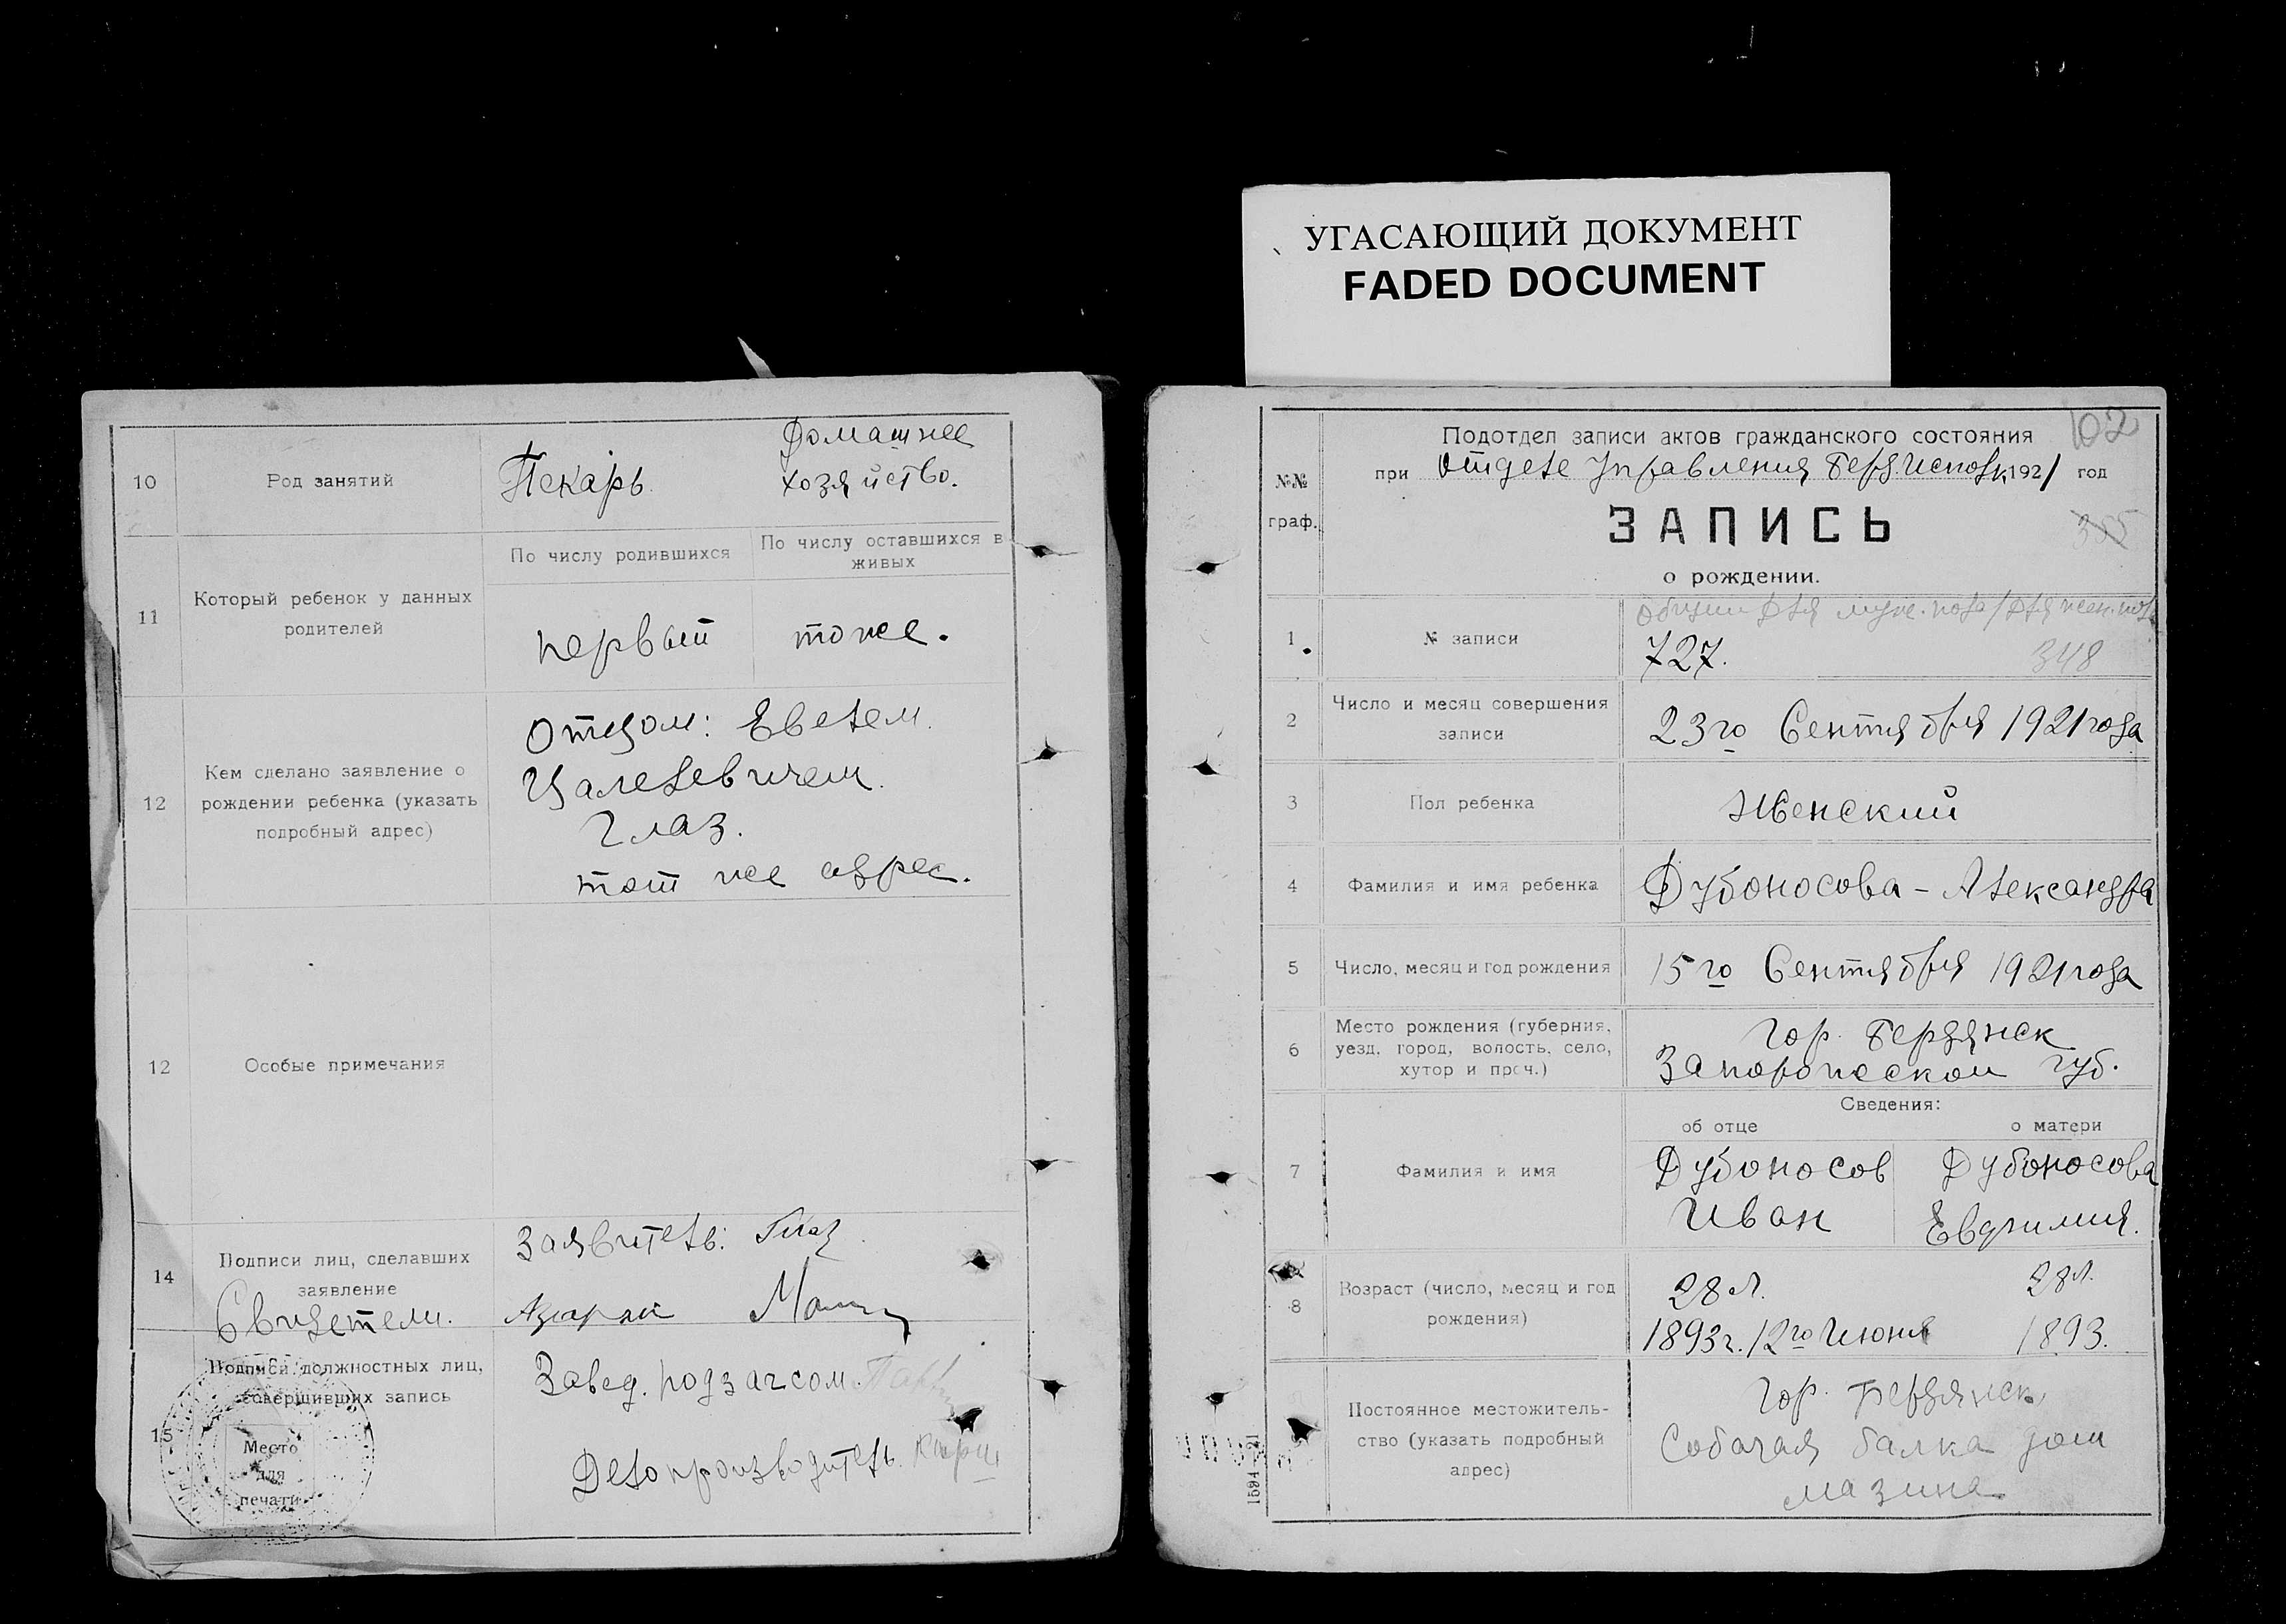 УГАСАЮЩИЙ ДОКУМЕНТ
FADED DOCUMENT
10
Род занятий
Пекарь.
Домашнее
хозяйство.
11
Который ребенок у данных
родителей
По числу родившихся
По числу оставшихся в
живых
первый
тоже.
12
Кем сделано заявление о
рождении ребенка (указать
подробный адрес)
Отцом:
Цалелевичем.
Глаз.
тот же адрес.
12
Особые примечания
14
Подписи лиц, сделавших
заявление
Свидетели.
Заявитель: Глаз
15
Подписи должностных лиц,
совершивших запись
Место
для
печати
Завед. подзагсом.
Делопроизводитель.
102
№№
граф.
Подотдел записи актов гражданского состояния
при Отделе Управления Берд. Исполк. 1921 год
ЗАПИСЬ
355
о рождении.
1
№ записи
общий для муж. пола / для жен. пола
727.
348
2
Число и месяц совершения
записи
23го Сентября 1921 года
3
Пол ребенка
Женский
4
Фамилия и имя ребенка
Дубоносова - Александра
5
Число, месяц и год рождения
15го Сентября 1921 года
6
Место рождения (губерния,
уезд, город, волость, село,
хутор и проч.)
Гор. Бердянск
Запорожской губ.
Сведения:
об отце
о матери
7
Фамилия и имя
Дубоносов
Иван
Дубоносова
Евдимия.
8
Возраст (число, месяц и год
рождения)
28 л.
1893 г. 12го Июня
28 л.
1893.
9
Постоянное местожитель-
ство (указать подробный
адрес)
Гор. Бердянск
Собачая балка дом
Мазина
1594